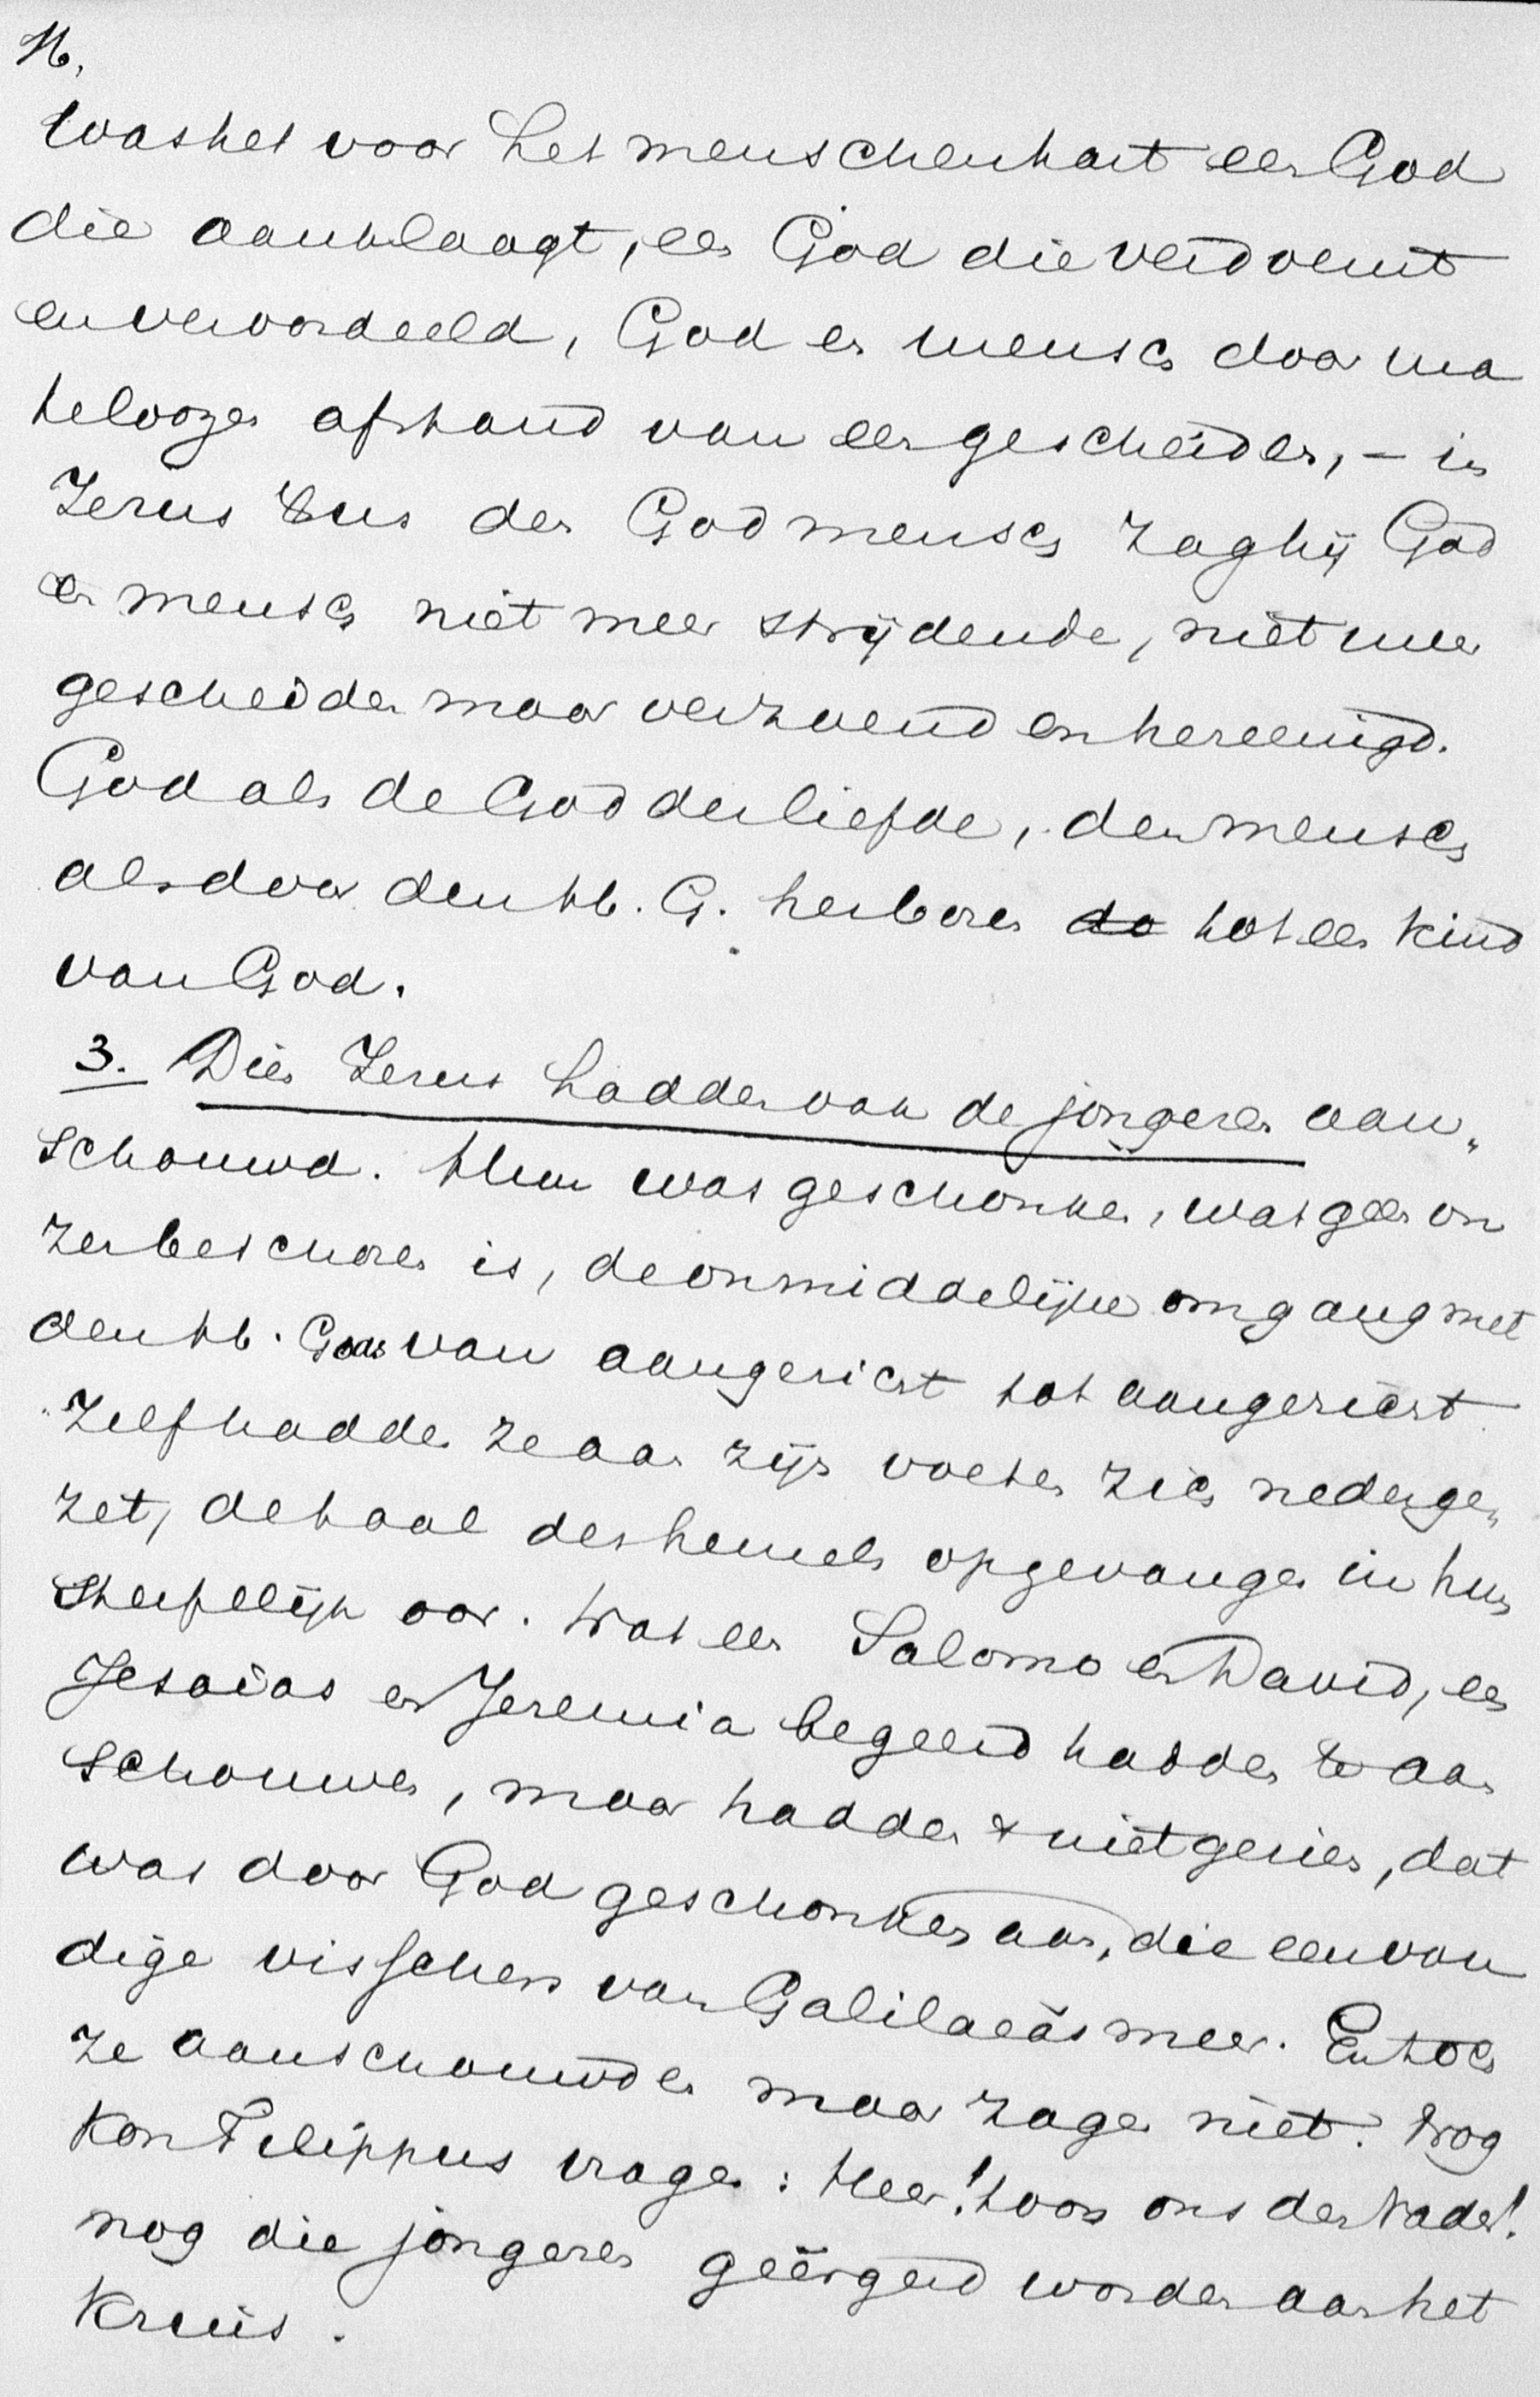 16.
Was het voor het menschenhart een God
die aanklaagt, een God die verdoemt
en veroordeeld, God en mensch door ma
telooze afstand van een gescheiden, – in
Jezus dus den Godmensch zag hij God
en mensch niet meer strijdende, niet meer
gescheiden maar verzoend en hereenigd.
God als de God der liefde, den mensch
als door den H. G. herboren tot een kind
van God.
3. Dien Jezus hadden van de jongeren aan„
schouwd. Hun was geschonken, wat geen on
zer beschoren is, de onmiddelijke omgang met
den H. G. van aangericht tot aangericht
Zelf hadden ze aan zijn voeten zich nederge„
zet, de taal des hemels opgevangen in hun
sterfelijk oor. Wat een Salomo en David, een
Jesaias en Jeremia begeerd hadden te aan
schouwen, maar hadden niet gezien, dat
was door God geschonken aan, die eenvou
dige visschers van Galilaeäs meer. En toch
ze aanschouwden maar zagen niet. Nog
kon Filippus vragen: Heer! toon ons den Vader!
nog die jongeren geërgerd worden aan het
Kruis.